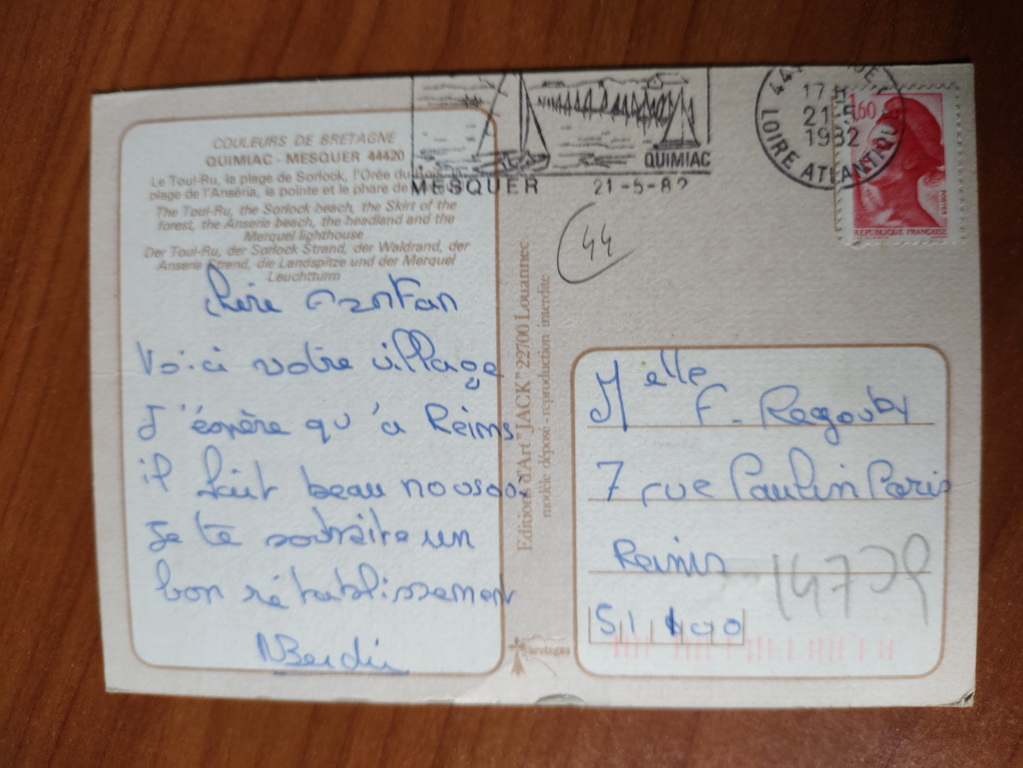 COULEURS DE BRETAGNE
QUIMIAC - MESQUER 44420
Le Toul-Ru, la plage de Sorlock, l'Orée du
plage de l'Anséria, la pointe et le phare de
The Toul-Ru, the Sorlock beach, the Skirt of the
forest, the Anseria beach, the headland and the
Merquel lighthouse
Der Toul-Ru, der Sorlock Strand, der Waldrand, der
Anseria Strand, die Landspitze und der Merquel
Leuchtturm
Voici votre village
J'espère qu'à Reims
il fait beau nous aussi
Je te souhaite un
bon rétablissement
Editions d'Art "JACK" 22700 Louannec
modèle déposé - reproduction interdite
MESQUER
QUIMIAC
21-5-82
17 H
21-5
1982
LOIRE ATLANTIQUE
1,60
POSTES
REPUBLIQUE FRANÇAISE
44
Melle
F. Ragouby
7 rue Paulin Paris
Reims
51100